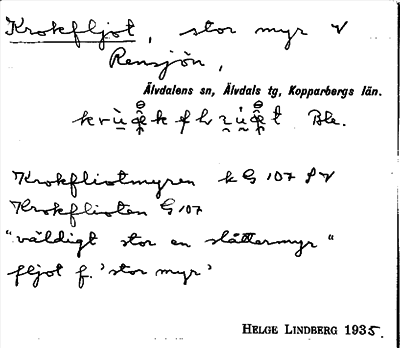 Krokfljot, stor myr V
Rensjön,
Älvdalens sn, Älvdals tg, Kopparbergs län.
Ble.
Krokfliotmyren kG 107 f V
Krokflioten G 107
"väldigt stor en slåttermyr"
fljot f. 'stor myr'
HELGE LINDBERG 1935.